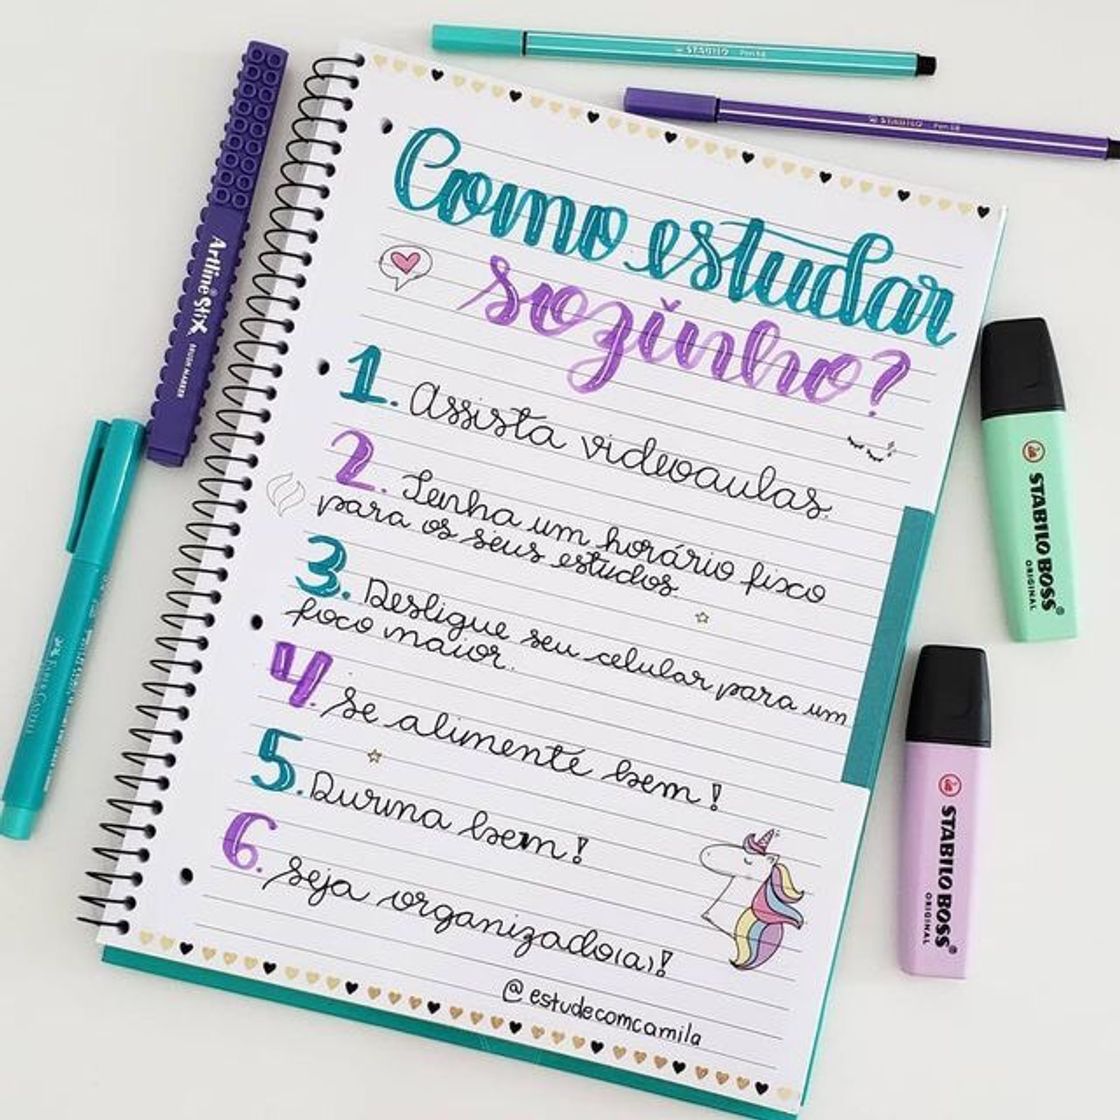 Como estudar
sozinho?
1. Assista videoaulas.
2. Tenha um horário fixo
para os seus estudos.
3. Desligue seu celular para um
foco maior.
4. Se alimente bem!
5. Durma bem!
6. Seja organizado(a)!
@estudecomcamila
STABILO Pen 68
STABILO Pen 68
Artline Stix BRUSH MARKER
FABER-CASTELL
STABILO BOSS
ORIGINAL
STABILO BOSS
ORIGINAL